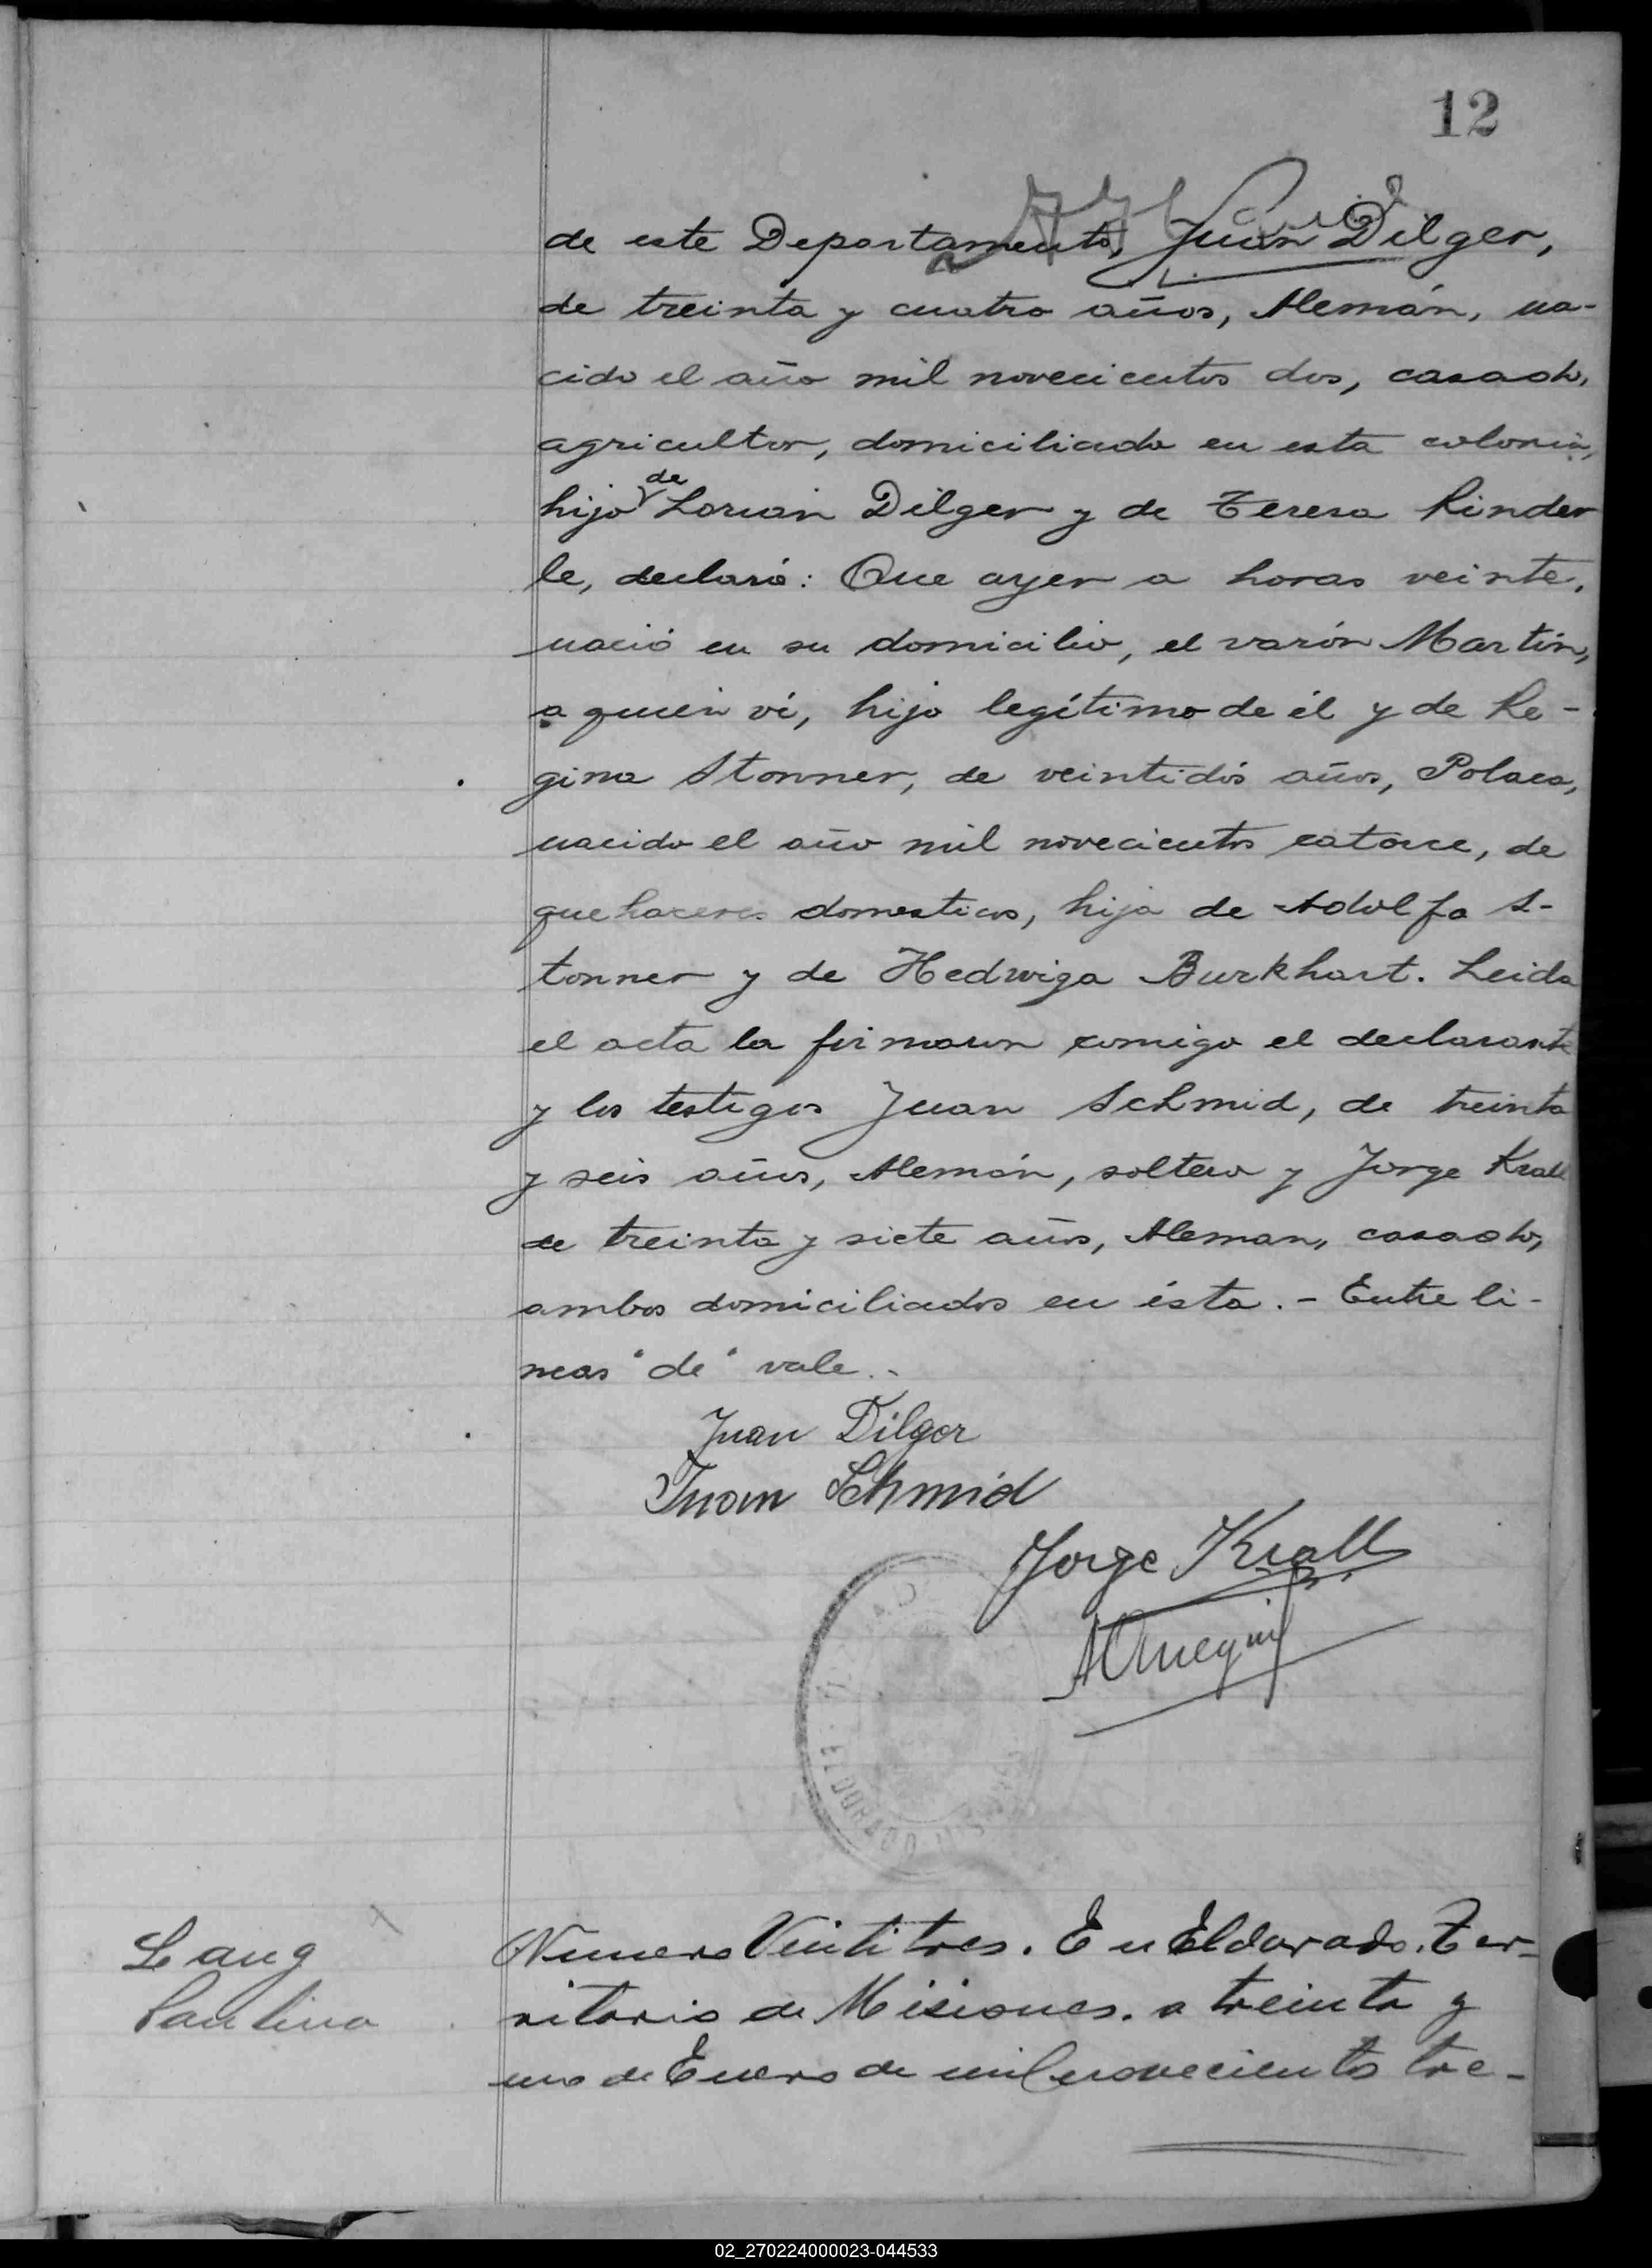 12
de este Departamento, Juan Dilger,
de treinta y cuatro años, Alemán, na-
cido el año mil novecientos dos, casado,
agricultor, domiciliado en esta colonia,
hijo de Lorian Dilger y de Teresa Rinder
le, declaró: Que ayer a horas veinte,
nació en su domicilio, el varón Martín,
a quien ví, hijo legítimo de él y de Re-
gina Stonner, de veintidós años, Polaca,
nacido el año mil novecientos catorce, de
quehaceres domesticos, hija de Adolfo S-
tonner y de Hedwiga Burkhart. Leida
el acta la firmaron comigo el declarante
y los testigos Juan Schmid, de treinta
y seis años, Alemán, soltero y Jorge Krall
de treinta y siete años, Aleman, casado,
ambos domiciliados en ésta. - Entre li-
neas "de" vale.-
Juan Dilger
Juan Schmid
Jorge Krall
ELDORADO
Lang
Paulina
Numero Veintitres. En Eldorado. Ter-
ritorio de Misiones. a treinta y
uno de Enero de mil novecientos tre-
02_270224000023-044533